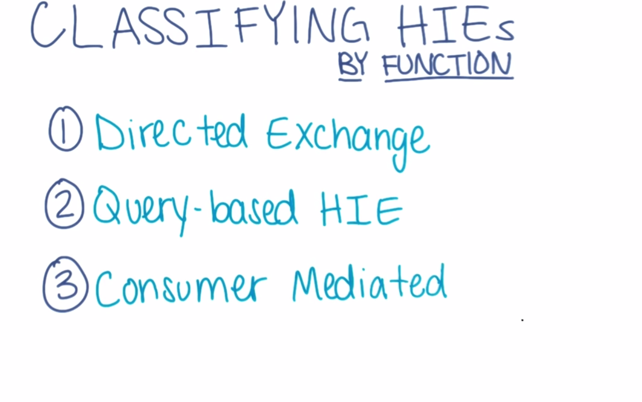 CLASSIFYING HIEs
BY FUNCTION
① Directed Exchange
② Query-based HIE
③ Consumer Mediated